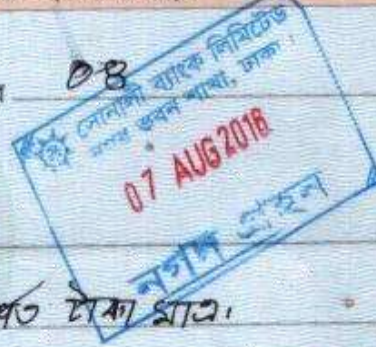 08
সোনালী ব্যাংক লিমিটেড
নগর ভবন শাখা, ঢাকা।
07 AUG 2016
নগদ গ্রহন
শত টাকা মাত্র।